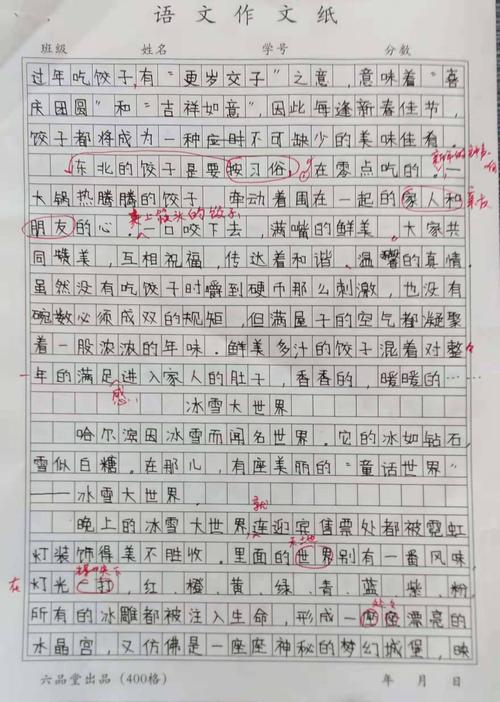 语文作文纸
班级 姓名 学号 分数
过年吃饺子,有“更岁交子”之意,意味着“喜
庆团圆”和“吉祥如意”,因此每逢新春佳节,
饺子都将成为一种应时不可缺少的美味佳肴.
东北的饺子是要按习俗,在零点吃的.一
大锅热腾腾的饺子,牵动着围在一起的家人和
亲友
朋友的心.一口咬下去,满嘴的鲜美.大家共
同赞美,互相祝福,传达着和谐、温馨的真情.
虽然没有吃饺子时嚼到硬币那么刺激,也没有
碗数必须成双的规矩,但满屋子的空气都凝聚
着一股浓浓的年味.鲜美多汁的饺子混着对整
一年的满足进入家人的肚子,香香的,暖暖的…
感
冰雪大世界
哈尔滨因冰雪而闻名世界.它的冰如钻石,
雪似白糖.在那儿,有座美丽的“童话世界”
——冰雪大世界.
就
晚上的冰雪大世界,连迎宾售票处都被霓虹
灯装饰得美不胜收.里面的世界别有一番风味.
在
灯光一打,红、橙、黄、绿、青、蓝、紫、粉,
所有的冰雕都被注入生命,形成一座座漂亮的
水晶宫,又仿佛是一座座神秘的梦幻城堡,映
六品堂出品(400格) 年 月 日